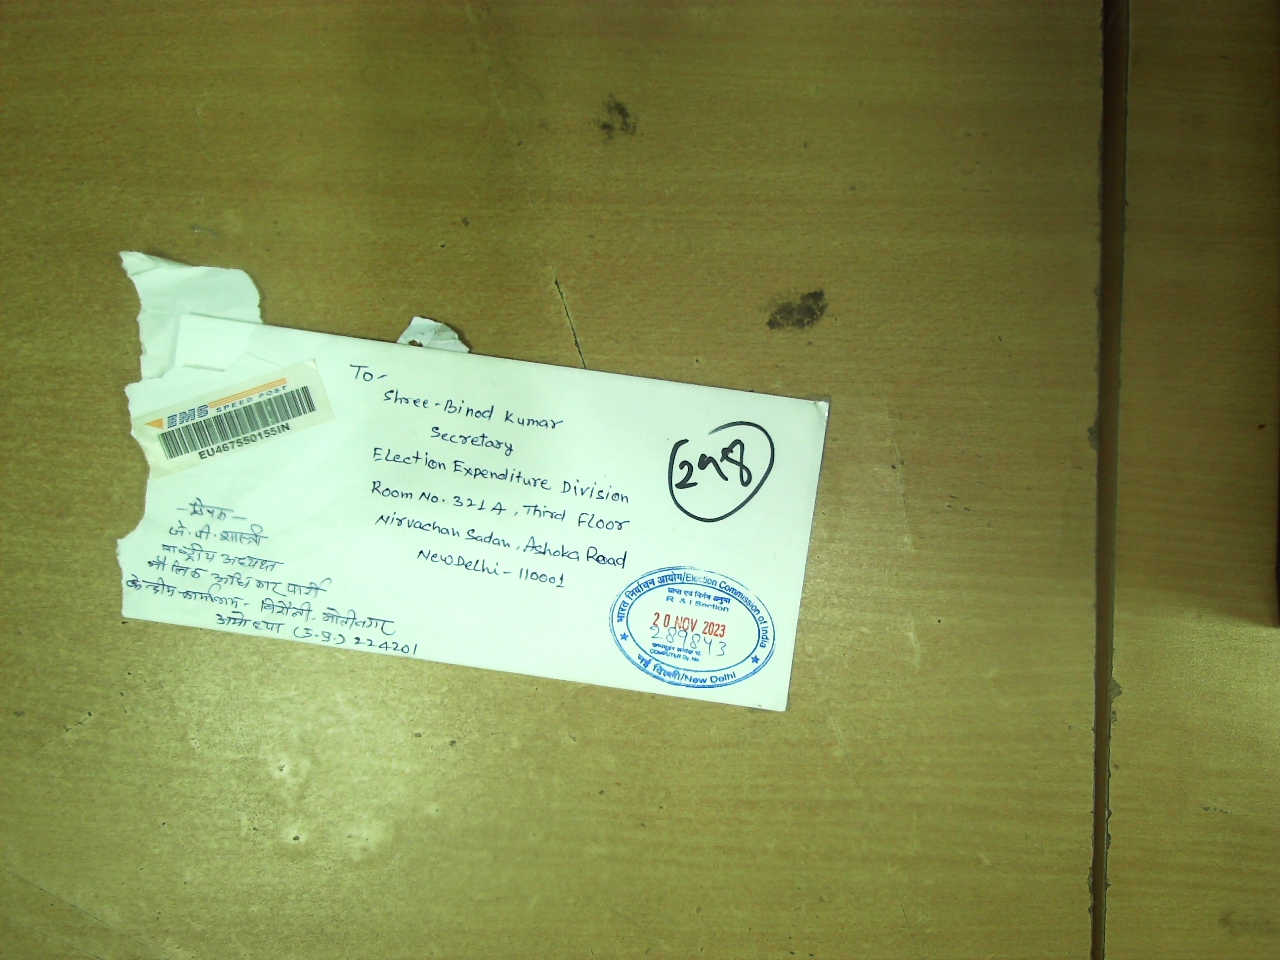 EMS SPEED POST
EU467550155IN
To-
Shree-Binod Kumar
Secretary
Election Expenditure Division
Room No. 321A, Third Floor
Nirvachan Sadan, Ashoka Road
New Delhi-110001
298
प्रेषक-
जे.पी. शास्त्री
राष्ट्रीय अध्यक्ष
मौलिक अधिकार पार्टी
केन्द्रीय कार्यालय- मोतीनगर
अयोध्या (उ.प्र.) 224201
भारत निर्वाचन आयोग/Election Commission of India
R & I Section
20 NOV 2023
289843
COMPUTER Dy. No.
नई दिल्ली/New Delhi